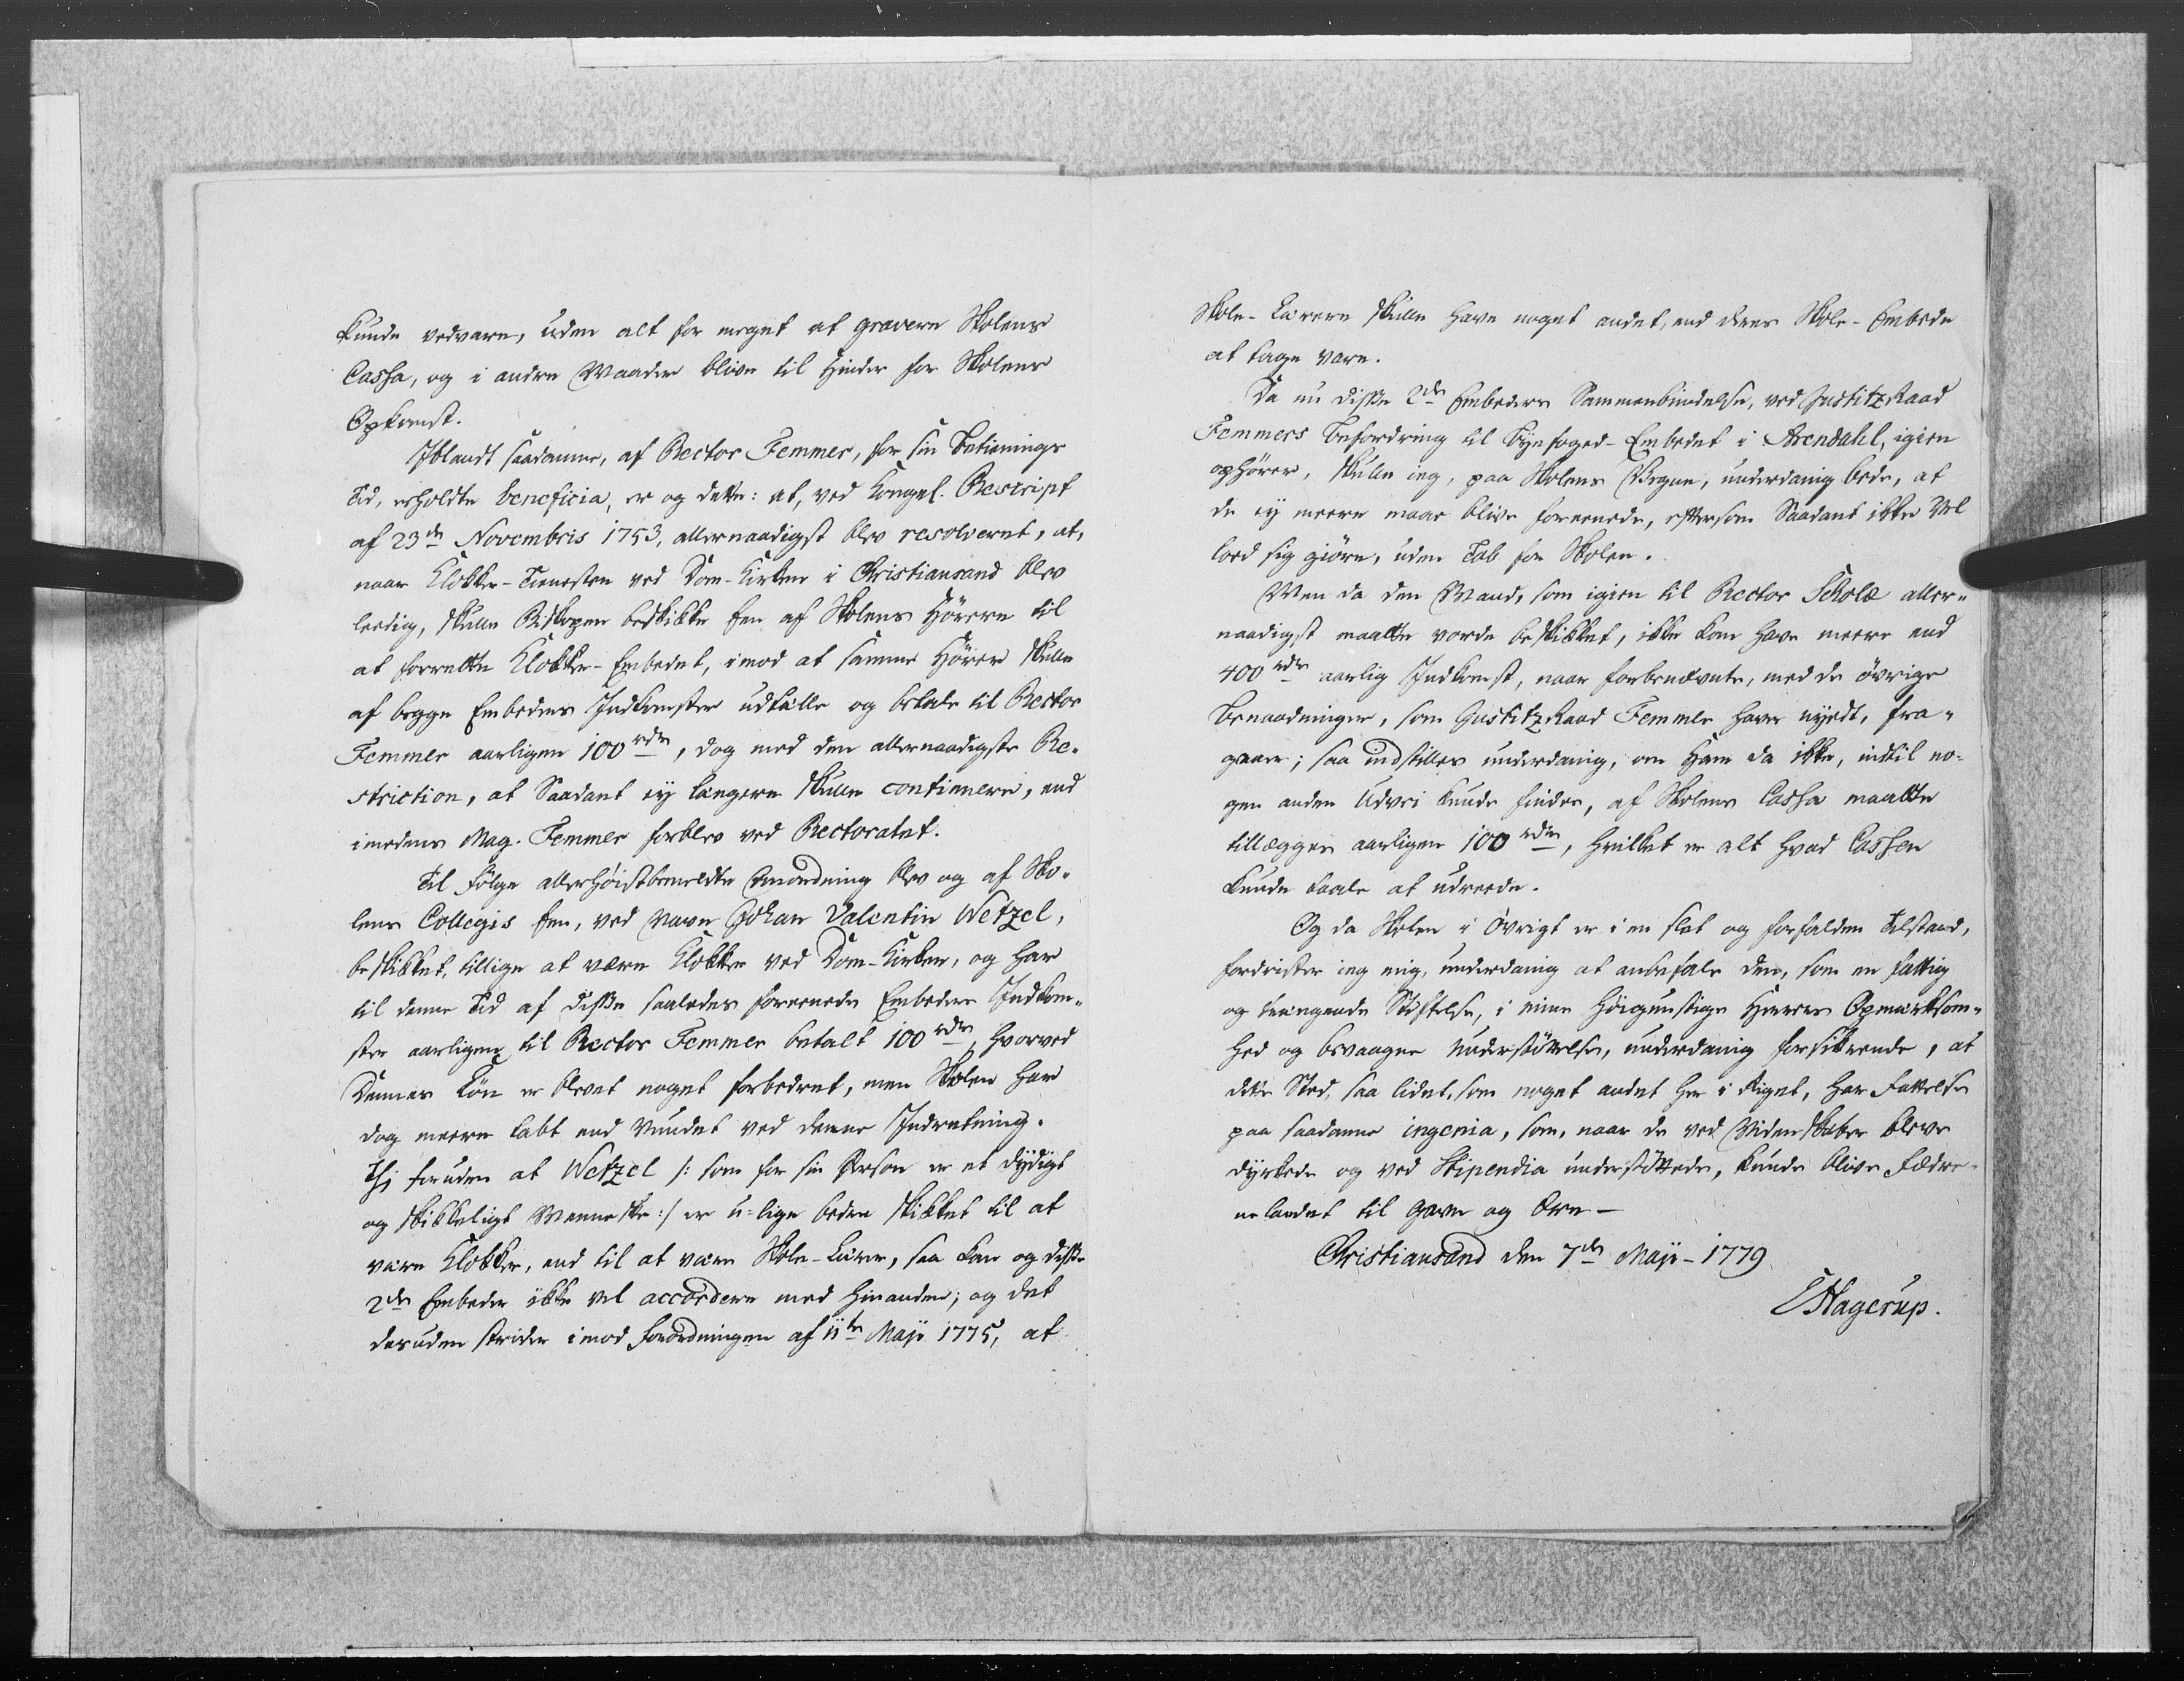 kunde vedvare, uden alt for meget at gravere Skolens
Cassa, og i andre Maader blive til Hinder for Skolens
Opkomst.
Iblandt saadanne, af Rector Femmer, for sin Betienings
Tid, erholdte beneficia, er og dette: at, ved Kongel. Rescript
af 23de Novembris 1753, allernaadigst blev resolveret, at,
naar Klokker-Tienesten ved Dom-Kirken i Christiansand blev
leedig, skulle Biskopen beskikke Een af Skolens Hörere til
at forrette Klokker-Embedet, imod at samme Hörer skulle
af begge Embeders Indkomster udtælle og betale til Rector
Femmer aarligen 100 rdr, dog med den allernaadigste Re-
striction, at Saadant ey længere skulle continuere, end
imedens Mag. Femmer forblev ved Rectoratet.
Til Fölge allerhöistbemeldte Anordning blev og af Sko-
lens Collegis Een, ved Navn Johan Valentin Wetzel,
beskikket, tillige at være Klokker ved Dom-Kirken, og har
til denne Tid af disse saaledes foreenede Embeders Indkom-
ster aarligen til Rector Femmer betalt 100 rdr, hvorved
Dennes Lön er blevet noget forbedret, men Skolen har
dog meere tabt end vundet ved denne Indretning.
Thi foruden at Wetzel /: som for sin Person er et dydigt
og skikkeligt Menneske :/ er u-lige bedre skikket til at
være Klokker, end til at være Skole-Lærer, saa kan og disse
2de Embeder ikke vel accordere med hinanden; og det
desuden strider imod Forordningen af 11te Maji 1775, at
Skole-Lærere skulle have noget andet, end deres Skole-Embede
at tage vare.
Da nu disse 2de Embeders Sammenbindelse, ved Justitz Raad
Femmers Befordring til Byefoged-Embedet i Arendahl, igien
ophörer, skulle ieg, paa Skolens Vegne, underdanig bede, at
de ey meere maae blive foreenede, eftersom Saadant ikke vel
lod sig giöre, uden Tab for Skolen.
Men da den Mand, som igien til Rector Scholæ aller-
naadigst maatte vorde beskikket, ikke kan have meere end
400 rdr aarlig Indkomst, naar forbenævnte, med de övrige
Benaadninger, som Justitz Raad Femmer haver nydt, fra-
gaaer; saa indstilles underdanig, om Ham da ikke, indtil no-
gen anden Udvei kunde findes, af Skolens Cassa maatte
tillægges aarligen 100 rdr, hvilket er alt hvad Cassen
kunde taale at udreede.
Og da Skolen i Övrigt er i en slet og forfalden Tilstand,
fordrister ieg mig, underdanig at anbefale den, som en fattig
og trængende Stiftelse, i mine Höigunstige Herrers Opmærksom-
hed og bevaagne Understöttelse, underdanig forsikrende, at
dette Sted, saa lidet, som noget andet her i Riget, har Fattelse
paa saadanne ingenia, som, naar de ved Videnskaber bleve
dyrkede og ved Stipendia understöttede, kunde blive Fædre-
nelandet til Gavn og Ære —
Christiansand den 7de Maji - 1779
E Hagerup.